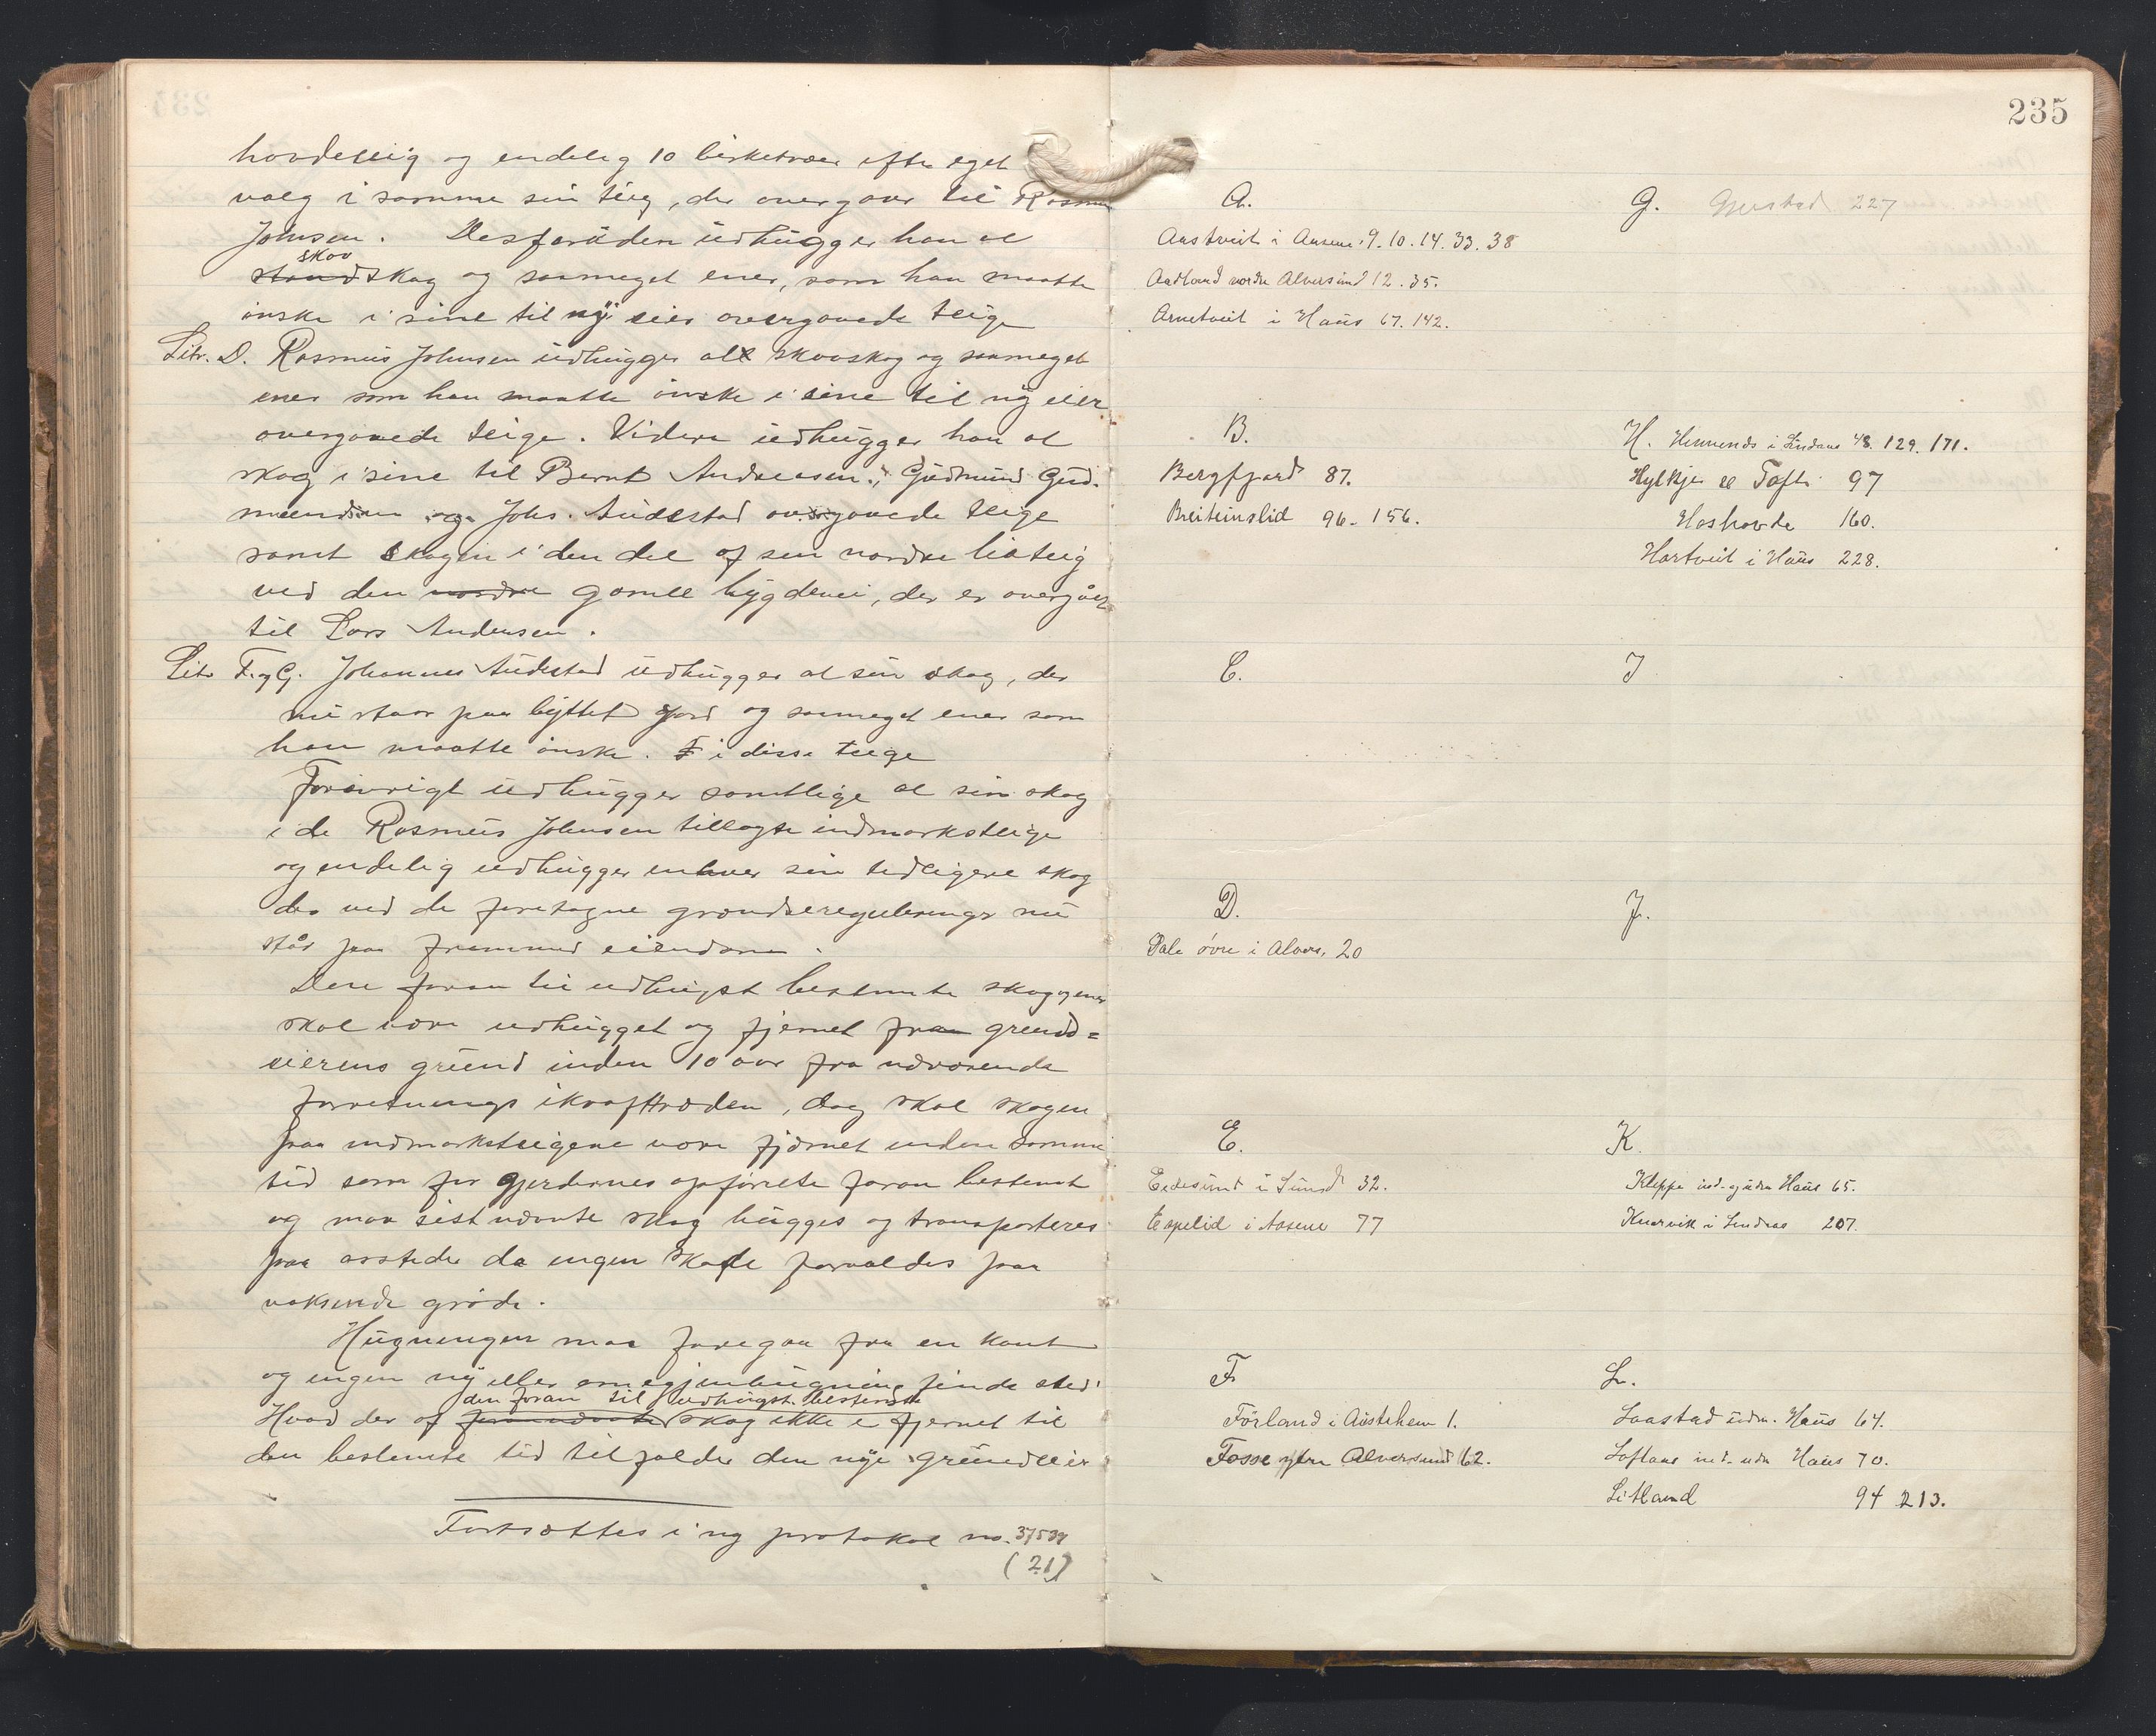 hovdeteig og endelig 10 birketrær efter eget
valg i samme sin teig, der overgaar til Rasmus
Johnsen. Desforuden udhugger han al
skov
skog og saameget ener, som han maatte
ønske i sine til ny eier overgaaede teige
Litr. D. Rasmus Johnsen udhugger all skovskog og saameget
ener som han maatte ønske i sine til ny eier
overgaaede teige. Videre udhugger han al
skog i sine til Bernt Andreasen, Gudmund Gud-
mundsen og Johs. Audestad overgaaede teige
samt skogen i den del af sin nordre liateig
ved den nordre gamle bygdevei, der er overgået
til Lars Andersen.
Litr F. og G. Johannes Audestad udhugger al sin skog, der
nu staar paa byttet jord og saameget ener som
han maatte ønske. i disse teige
Forøvrigt udhugger samtlige al sin skog
i de Rasmus Johnsen tillagte indmarksteige
og endelig udhugger enhver sin tidligere skog
der ved de foretagne grændsereguleringer nu
står paa fremmed eiendom.
Den foran til udhugst bestemte skog og ener
skal være udhugget og fjernet fra grund=
eierens grund inden 10 aar fra nærværende
forretnings ikrafttræden, dog skal skogen
paa indmarksteigene være fjernet inden samme
tid som for gjerdernes opførelse foran bestemt
og maa sistnævnte skog hugges og transporteres
paa aarstider da ingen skade forvoldes paa
voksende grøde.
Hugningen maa foregaa fra en kant
og ingen ny eller omegjenhugning finde sted.
den foran til udhugst bestemte
Hvad der af skog ikke er fjernet til
den bestemte tid tilfalder den nye grundeier
Fortsættes i ny protokol no. 37539
(21)
235
A.
Austveit i Aasene 9. 10. 14. 33. 38
Aadland nordre Alversund 12. 35.
Arnetveit i Haus 67. 142.
B.
Bergfjord 87.
Breiteinslid 96. 156.
C.
D.
Dale øvre i Alvers. 20
E.
Eidesund i Lund 32.
Espelid i Aasene 77
F
Förland i Austrheim 1.
Fosse ytre Alversund 62.
G. Gjerstad 227
H. Hennends i Lindaas 48. 129. 171.
Hylkje el Tofte 97
Hoshovde 160.
Hartveit i Haus 228.
I
J.
K.
Kleppe ind. og udre Haus 65.
Knarvik i Lindaas 207.
L.
Laastad udre. Haus 64.
Loftaas ind. udre Haus 70.
Litland 94 213.